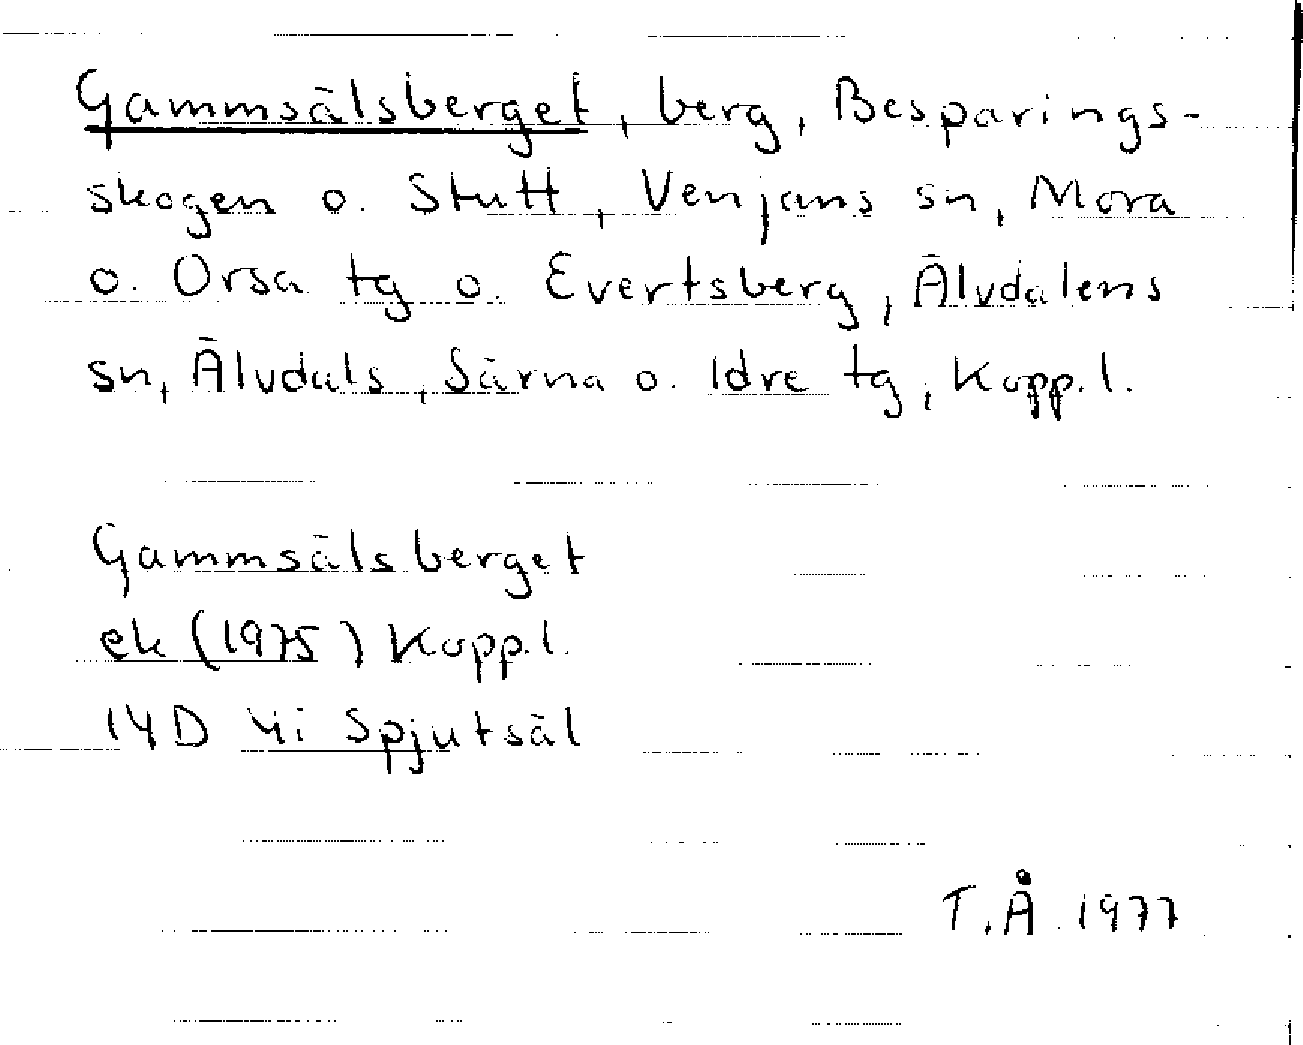 Gammsälsberget, berg, Besparings-
skogen o. Stutt, Venjans sn, Mora
o. Orsa tg o. Evertsberg, Älvdalens
sn, Älvdals, Särna o. Idre tg, Kopp. l.
Gammsälsberget
ek (1975) Kopp. l.
14D 4i Spjutsäl
T. Å. 1977